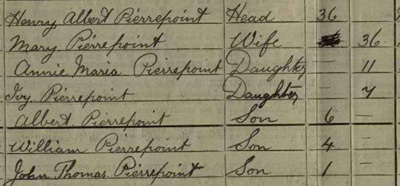 Henry Albert Pierrepoint Head 36
Mary Pierrepoint Wife 36
Annie Maria Pierrepoint Daughter 11
Ivy Pierrepoint Daughter — 7
Albert Pierrepoint Son 6 —
William Pierrepoint Son 4 —
John Thomas Pierrepoint Son 1